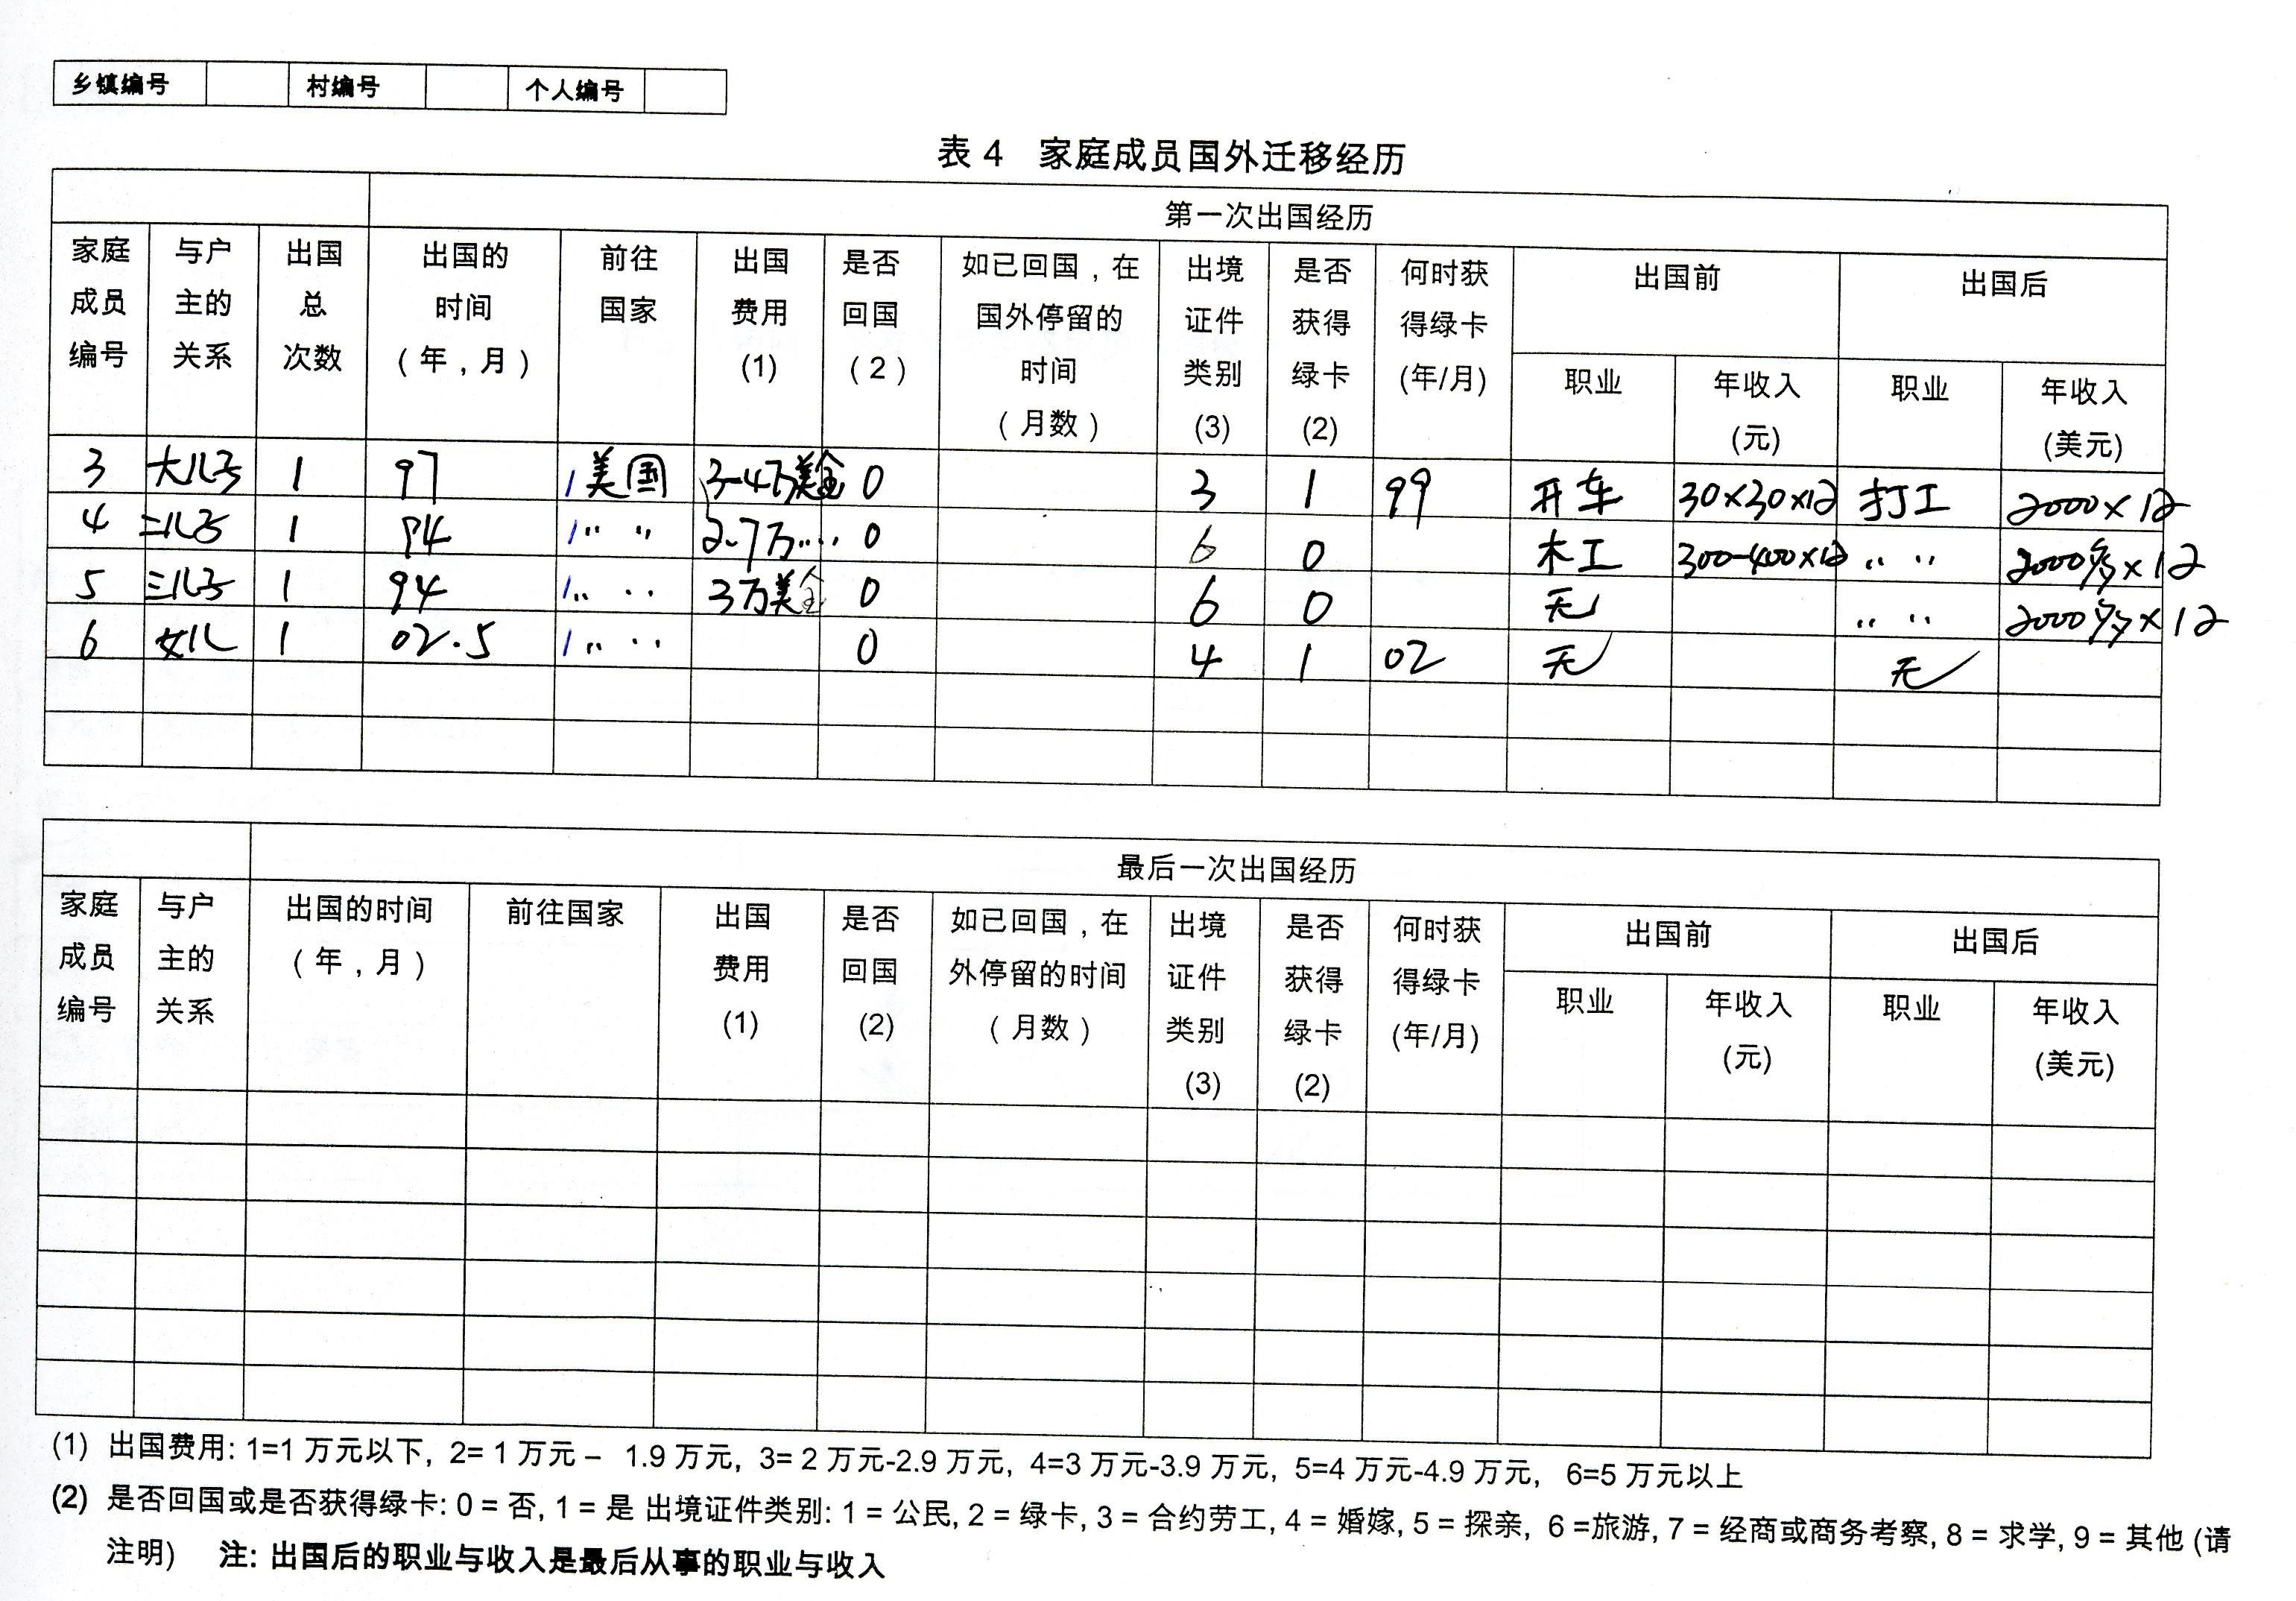 乡镇编号 村编号 个人编号
表 4 家庭成员国外迁移经历
第一次出国经历
家庭成员编号 与户主的关系 出国总次数 出国的时间（年，月） 前往国家 出国费用(1) 是否回国（2） 如已回国，在国外停留的时间（月数） 出境证件类别(3) 是否获得绿卡(2) 何时获得绿卡(年/月) 出国前 出国后
职业 年收入(元) 职业 年收入(美元)
3 大儿子 1 97 1 美国 3-4万美金 0 3 1 99 开车 30×30×12 打工 2000×12
4 二儿子 1 94 1 〃 〃 2.7万〃〃 0 6 0 木工 300-400×12 〃 〃 2000多×12
5 三儿子 1 94 1 〃 〃 3万美金 0 6 0 无 〃 〃 2000多×12
6 女儿 1 02.5 1 〃 〃 0 4 1 02 无 无
最后一次出国经历
家庭成员编号 与户主的关系 出国的时间（年，月） 前往国家 出国费用(1) 是否回国(2) 如已回国，在外停留的时间（月数） 出境证件类别(3) 是否获得绿卡(2) 何时获得绿卡(年/月) 出国前 出国后
职业 年收入(元) 职业 年收入(美元)
(1) 出国费用: 1=1 万元以下, 2= 1 万元 – 1.9 万元, 3= 2 万元-2.9 万元, 4=3 万元-3.9 万元, 5=4 万元-4.9 万元, 6=5 万元以上
(2) 是否回国或是否获得绿卡: 0 = 否, 1 = 是 出境证件类别: 1 = 公民, 2 = 绿卡, 3 = 合约劳工, 4 = 婚嫁, 5 = 探亲, 6 =旅游, 7 = 经商或商务考察, 8 = 求学, 9 = 其他 (请
注明) 注: 出国后的职业与收入是最后从事的职业与收入